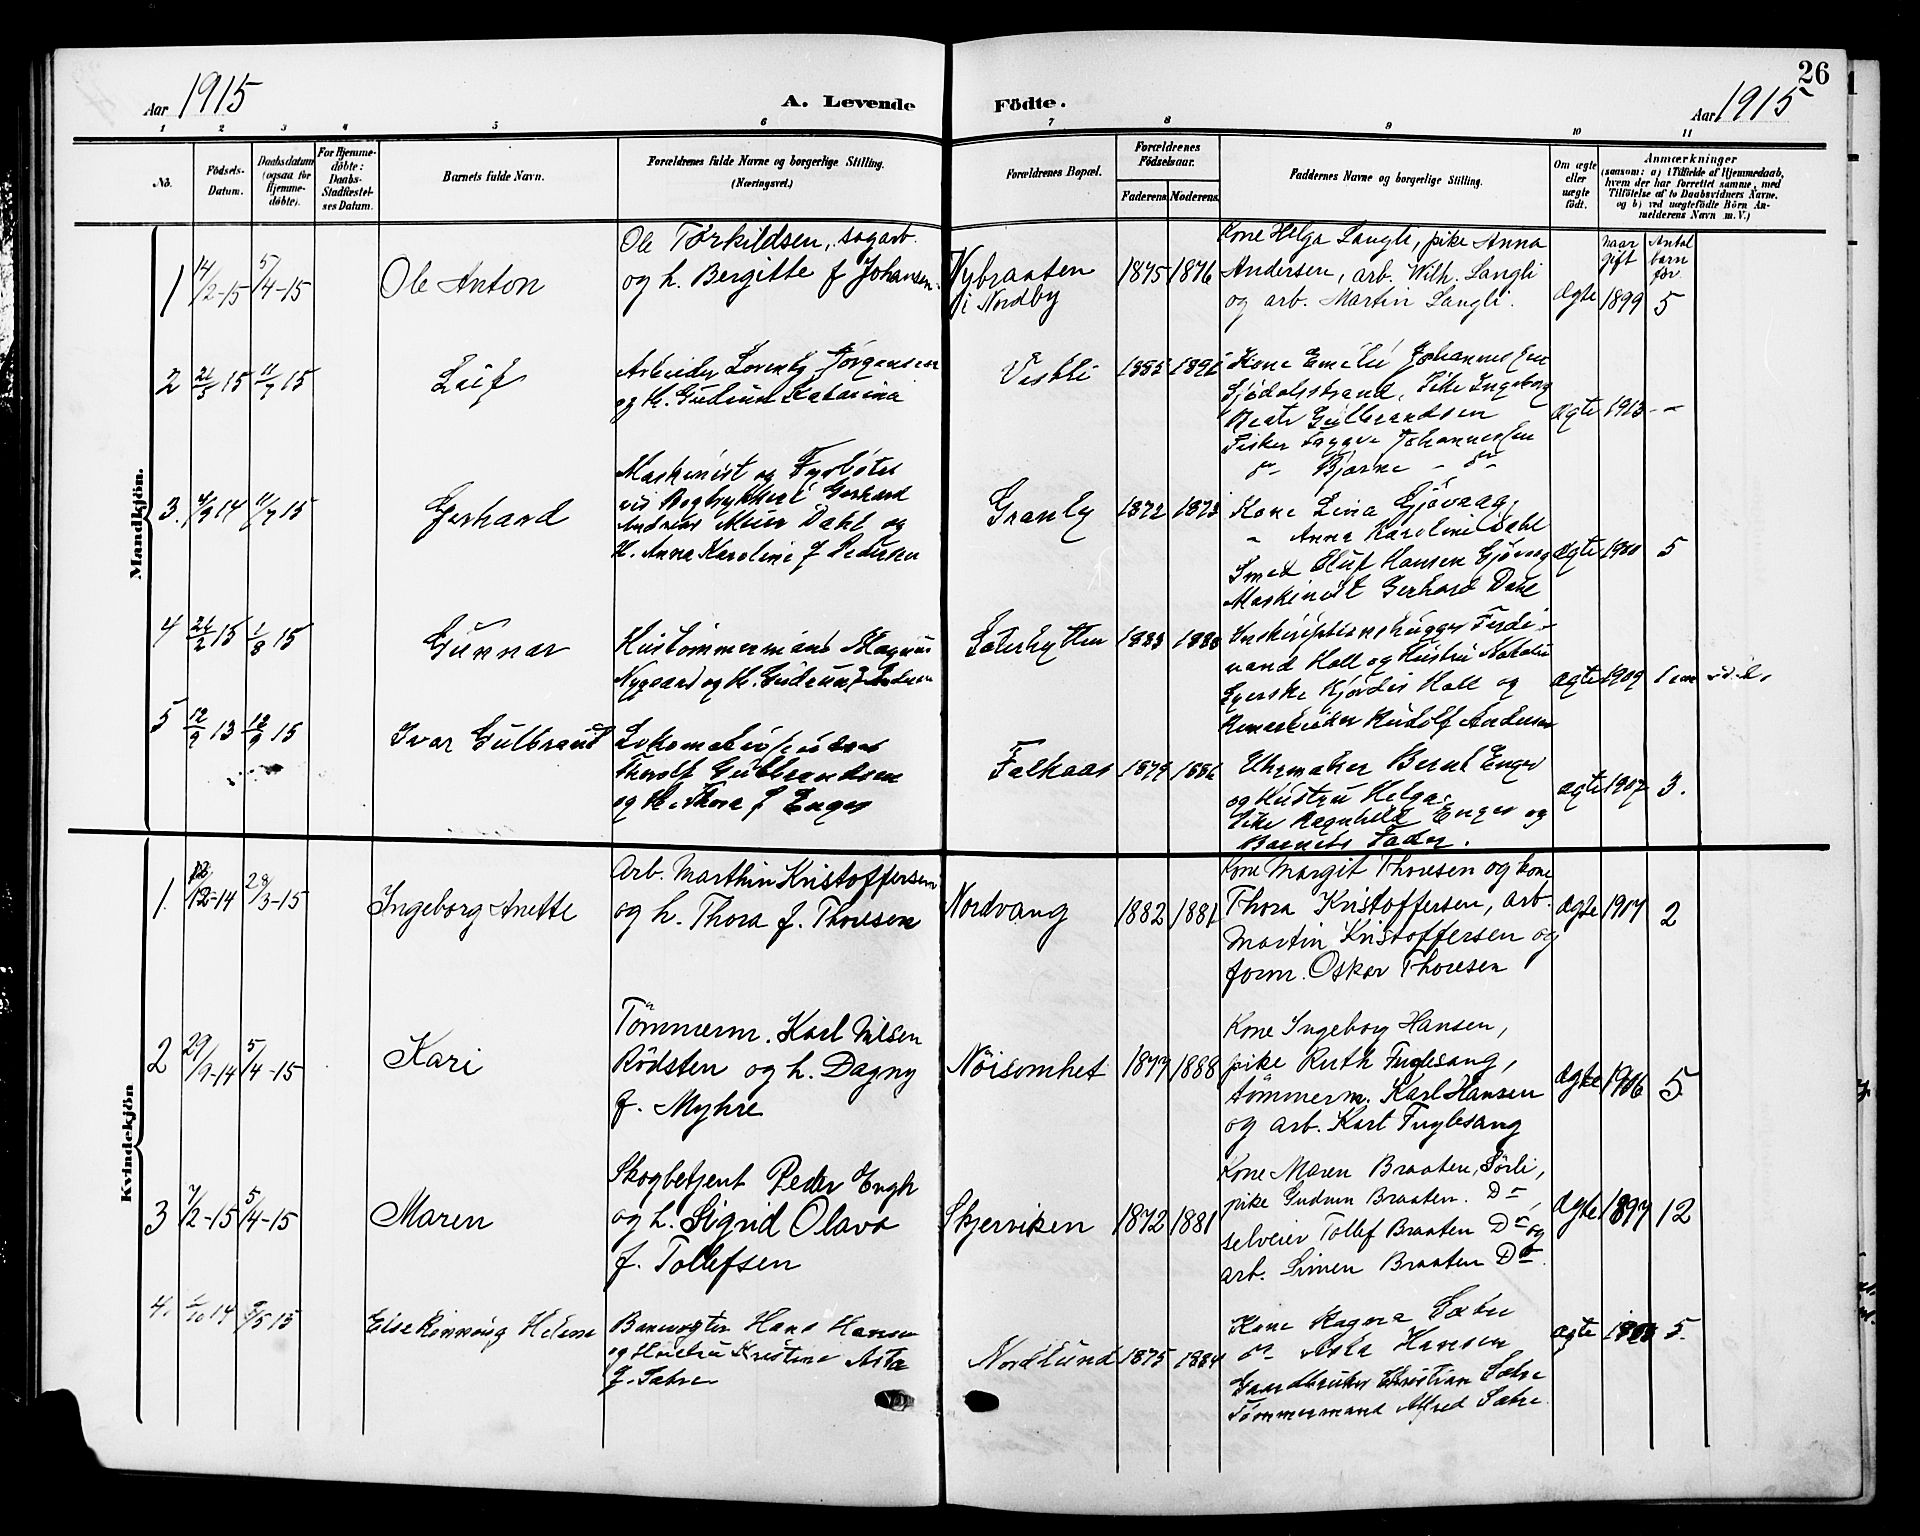 26
Aar 1915
A. Levende Födte.
Aar 1915
1 2 3 4 5 6 7 8 9 10 11
No.
Födsels-
Datum.
Daabsdatum
(ogsaa for
Hjemme-
døbte).
For Hjemme-
døbte:
Daabs-
Stadfæstel-
ses Datum.
Barnets fulde Navn.
Forældrenes fulde Navne og borgerlige Stilling.
(Næringsvei.)
Forældrenes Bopæl.
Forældrenes
Födselsaar.
Faderens Moderens
Faddernes Navne og borgerlige Stilling.
Om ægte
eller
uægte
født.
Anmærkninger
(saasom: a) i Tilfælde af Hjemmedaab,
hvem der har forrettet samme, med
Tilföielse af to Daabsvidners Navne.
og b) ved uægtefödte Börn An-
melderens Navn m. V.)
naar
gift
Antal
barn
før
Mandkjön.
1 14/2-15 5/4-15 Ole Anton
Ole Torkildsen, sagarb.
og h. Bergitte f Johansen
Nybraaten
i Nordby
1875 1876
Kone Helga Langli, pike Anna
Andersen, arb. Wilh. Langli
og arb. Martin Langli.
Ægte 1899 5
2 15 11/7 15 Leif
Arbeider Lorentz Jörgensen
og H. Gudrun Katarina
Vestli
Kone Emilie Johannessen
Sjödalsstrand, Pike Ingeborg
Beate Gulbrandsen
Fisker Johannessen
do Bjarne - do
ægte 1913 - -
3. 4/9 14 11/7 15 Gerhard
Maskinist og Fyrböter
ved Gerhard
Andreas Dahl og
H. Anna Karoline f Pedersen
Granly
1872 1873
Kone Lina Gjövaag
" Anna Karoline Dahl
Smed Oluf Hansen Gjövaag
Maskinist Gerhard Dahl
ægte 1900 5
4 15 1/8 15 Gunnar
Hustömmermand Magnus
Nygaard og H. Gudrun f Andersen
Säterhytten
1883
Ferdi-
nand Holl og Hustru
Hjördis Holl og
Rudolf Andersen
ægte 1909 1
5 12/9 13 12/9 15 Ivar Gulbrand
Thorolf Gulbrandsen
og H. Thora f Enger
Falkaas
1879 1886
Uhrmaker Bernt Enger
og Hustru Helga.
Pike Ragnhild Enger og
Barnets Fader.
ægte 1907 3.
Kvindekjön
1. 12-14 28/3-15 Ingeborg Anette
Arb. Marthin Kristoffersen
og h. Thora f. Thoresen
Nordvang
1882 1881
Kone Margit Thoresen og kone
Thora Kristoffersen, arb.
Martin Kristoffersen og
form. Oskar Thoresen
Ægte 1907 2
2 29/9-14 5/4-15 Kari
Tömmerm. Karl Nilsen
Rödsten og h. Dagny
f. Myhre
Nöisomhet
1877 1888
Kone Ingeborg Hansen,
pike Ruth Fuglesang,
tömmerm. Karl Hansen
og arb. Karl Fuglesang
Ægte 1906 5
3 7/2-15 5/4-15 Maren
Skogbetjent Peder Engh
og h. Sigrid Olava
f. Tollefsen
Skjerviken
1872 1881
Kone Maren Braaten, Sörli,
pike Gudrun Braaten. Do,
selveier Tollef Braaten Do og
arb. Simen Braaten Do
Ægte 1897 12
4. 14 15 Else Rönnaug Helene
Banevogter Hans Hansen
og Hustru Kristine Asta
f. Sætre
Nordlund
1875 1884
Kone Ragna Sætre
do Asta Hansen
Gaardbruker Christian Sætre
Tömmermand Alfred Sætre
ægte 5.